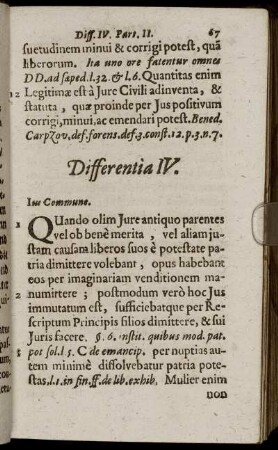 Diff. IV. Part. II. 67
suetudinem minui & corrigi potest, quã
liberorum. Ita uno ore fatentur omnes
DD. ad sæped. l. 32. & l. 6. Quantitas enim
12 Legitimæ est à Jure Civili adinventa, &
statuta, quæ proinde per Jus positivum
corrigi, minui, ac emendari potest. Bened.
Carpzov. def. forens. def. 3. const. 12. p. 3. n. 7.
Differentia IV.
Jus Commune.
1 QUando olim Jure antiquo parentes
vel ob benè merita, vel aliam ju-
stam causam liberos suos è potestate pa-
tria dimittere volebant, opus habebant
eos per imaginariam venditionem ma-
2 numirtere; postmodum verò hoc Jus
immutatum est, sufficiebatque per Re-
scriptum Principis filios dimittere, & sui
Juris facere. §. 6. Instit. quibus mod. pat.
3 pos sol. l. 5. C de emancip. per nuptias au-
tem minimè dissolvebatur patria pote-
stas. l. 1. in fin. ff. de lib. exhib. Mulier enim
non